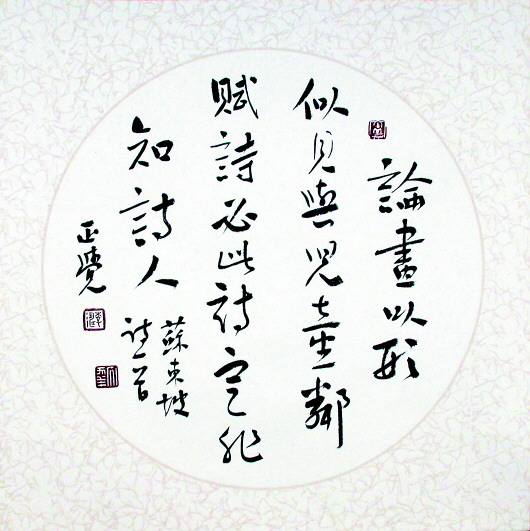 論畫以形
似見與児童鄰
賦詩必此詩定非
知詩人
蘇東坡
詩一首
正覺